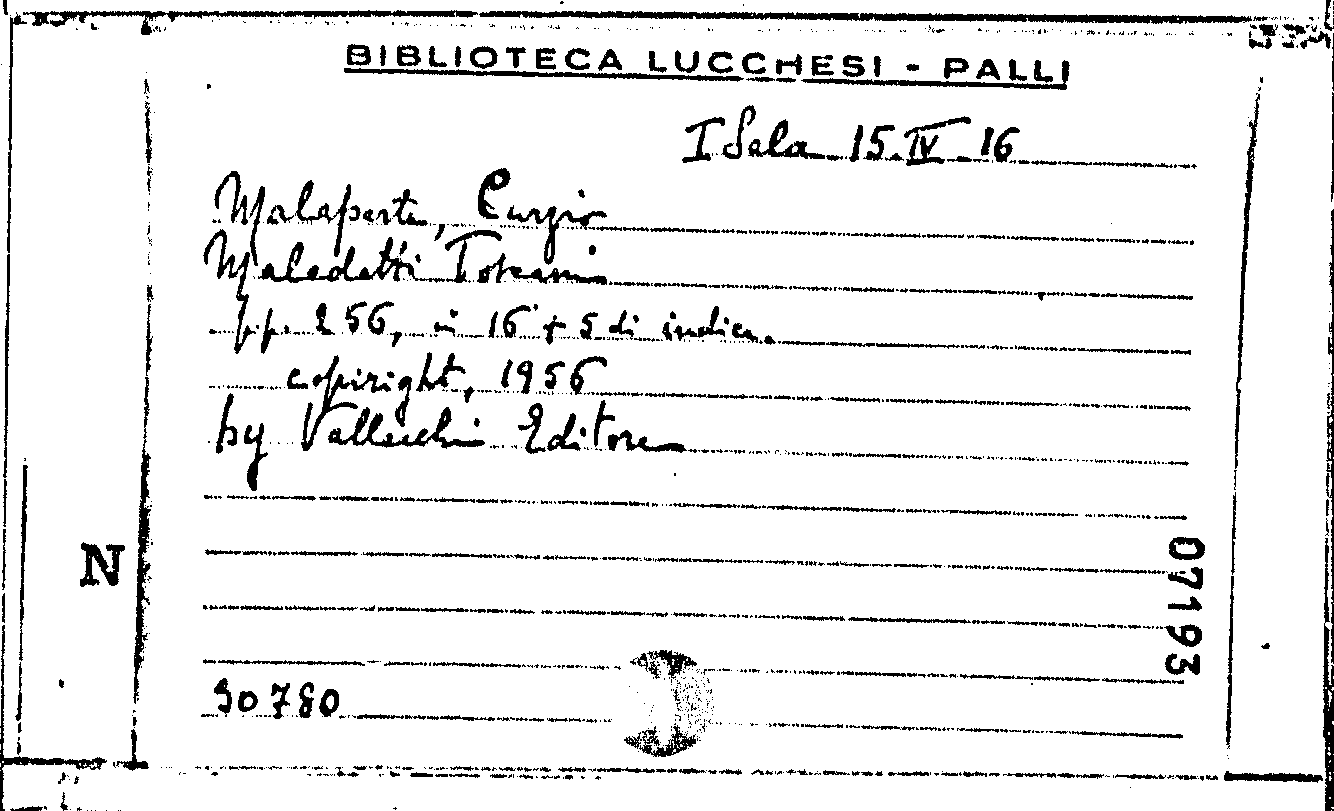 BIBLIOTECA LUCCHESI - PALLI
I Sala 15.IV.16
Malaparte, Curzio
Maledetti Toscani
pp. 256, in 16° + 5 di indice.
copiright, 1956
by Vallecchi Editore
N
07193
30780